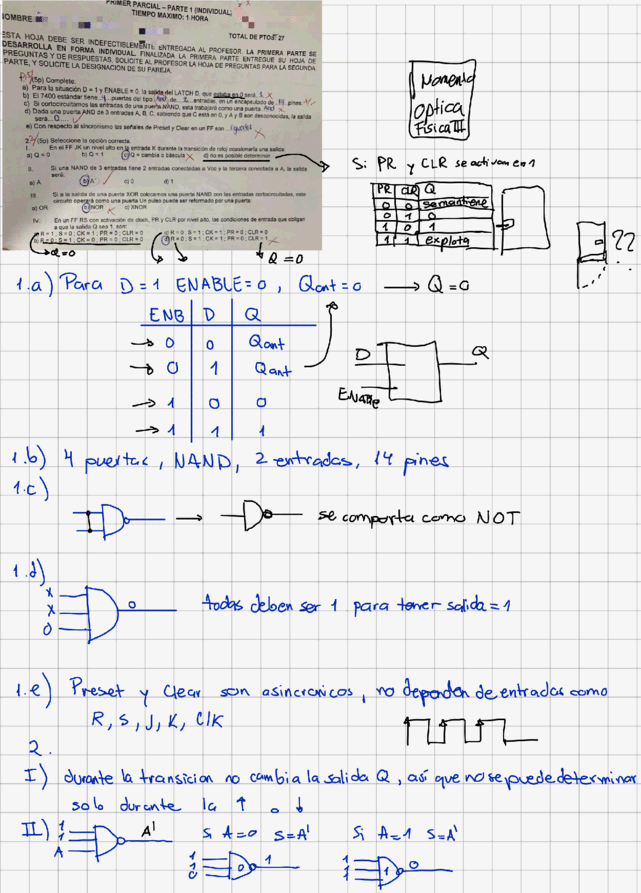 PRIMER PARCIAL - PARTE 1 (INDIVIDUAL)
TIEMPO MAXIMO: 1 HORA
NOMBRE
TOTAL DE PTOS: 27
ESTA HOJA DEBE SER INDEFECTIBLEMENTE ENTREGADA AL PROFESOR. LA PRIMERA PARTE SE
DESARROLLA EN FORMA INDIVIDUAL. FINALIZADA LA PRIMERA PARTE ENTREGUE SU HOJA DE
PREGUNTAS Y DE RESPUESTAS, SOLICITE AL PROFESOR LA HOJA DE PREGUNTAS PARA LA SEGUNDA
PARTE, Y SOLICITE LA DESIGNACION DE SU PAREJA.
(5p) Complete:
a) Para la situación D = 1 y ENABLE = 0, la salida del LATCH D, que estaba en 0 será: 1
b) El 7400 estándar tiene 4 puertas del tipo And de 2 entradas, en un encapsulado de pines.
c) Si cortocircuitamos las entradas de una puerta NAND, esta trabajará como una puerta And
d) Dada una puerta AND de 3 entradas A, B, C, sabiendo que C está en 0, y A y B son desconocidas, la salida
será: 0
e) Con respecto al sincronismo las señales de Preset y Clear en un FF son iguales
2. (5p) Seleccione la opción correcta.
I. En el FF JK un nivel alto en la entrada K durante la transición de reloj ocasionaría una salida:
a) Q = 0 b) Q = 1 c) Q = cambia o báscula d) no es posible determinar
II. Si una NAND de 3 entradas tiene 2 entradas conectadas a Vcc y la tercera conectada a A, la salida
será:
a) A b) A' c) 0 d) 1
III. Si a la salida de una puerta XOR colocamos una puerta NAND con las entradas cortocircuitadas, este
circuito operará como una puerta Un pulso puede ser reformado por una puerta:
a) OR b) NOR c) XNOR
IV. En un FF RS con activación de clock, PR y CLR por nivel alto, las condiciones de entrada que obligan
a que la salida Q sea 1, son:
a) R = 1 ; S = 0 ; CK = 1 ; PR = 0 ; CLR = 0 c) R = 0 ; S = 1 ; CK = 1 ; PR = 0 ; CLR = 0
b) R = 0 ; S = 1 ; CK = 0 ; PR = 0 ; CLR = 0 d) R = 0 ; S = 1 ; CK = 1 ; PR = 0 ; CLR = 1
Q = 0
Q = 0
Momento
Optica
Fisica III
Si PR y CLR se activan en 1
PR CLR Q
0 0 se mantiene
0 1 0
1 0 1
1 1 explota
??
1.a) Para D = 1 ENABLE = 0, Qant = 0 → Q = 0
ENB D Q
→ 0 0 Qant
→ 0 1 Qant
→ 1 0 0
→ 1 1 1
D Q
Enable
1.b) 4 puertas, NAND, 2 entradas, 14 pines
1.c)
→ se comporta como NOT
1.d)
X
X
0
0
todas deben ser 1 para tener salida = 1
1.e) Preset y Clear son asincronicos, no dependen de entradas como
R, S, J, K, Clk
2.
I) durante la transicion no cambia la salida Q, así que no se puede determinar
solo durante la ↑ o ↓
II) 1 1 A A' Si A=0 S=A' Si A=1 S=A'
1 1 0 0 1 1 1 1 1 0